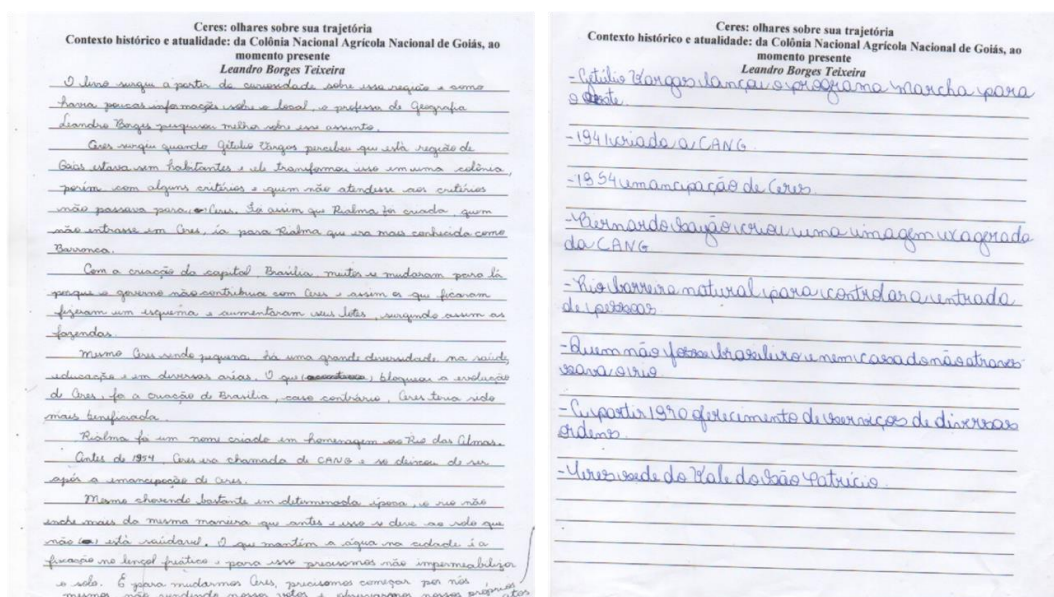 Ceres: olhares sobre sua trajetória
Contexto histórico e atualidade: da Colônia Nacional Agrícola Nacional de Goiás, ao
momento presente
Leandro Borges Teixeira
O livro surgiu a partir da curiosidade sobre essa região e como
havia poucas informações sobre o local, o professor de Geografia
Leandro Borges pesquisou melhor sobre esse assunto.
Ceres surgiu quando Getulio Vargas percebeu que esta região de
Goiás estava sem habitantes e ele transformou isso em uma colônia,
porém com alguns critérios e quem não atendesse aos critérios
não passava para Ceres. Foi assim que Rialma foi criada, quem
não entrasse em Ceres, ia para Rialma que era mais conhecida como
Barranca.
Com a criação da capital, Brasília, muitos se mudaram para lá
porque o governo não contribuia com Ceres e assim os que ficaram
fizeram um esquema e aumentaram seus lotes, surgindo assim as
fazendas.
Mesmo Ceres sendo pequena, há uma grande diversidade, na saúde,
educação e em diversas áreas. O que bloqueou a evolução
de Ceres, foi a criação de Brasília, caso contrário, Ceres teria sido
mais beneficiada.
Rialma foi um nome criado em homenagem ao Rio das Almas.
Antes de 1954, Ceres era chamada de CANG e só deixou de ser
após a emancipação de Ceres.
Mesmo chovendo bastante em determinada época, o rio não
enche mais da mesma maneira que antes e isso se deve ao solo que
não está saudável. O que mantém a água na cidade é a
fixação no lençol freático e para isso precisamos não impermeabilizar
o solo. E para mudarmos Ceres, precisamos começar por nós
mesmos não vendendo nossos votos e observarmos nossos próprios
atos
Ceres: olhares sobre sua trajetória
Contexto histórico e atualidade: da Colônia Nacional Agrícola Nacional de Goiás, ao
momento presente
Leandro Borges Teixeira
- Getúlio Vargas lançou o programa marcha para
o Oeste.
- 1941 criada a CANG.
- 1954 emancipação de Ceres.
- Bernardo Sayão criou uma imagem exagerada
da CANG
- Rio barreira natural para controlar a entrada
de pessoas.
- Quem não fosse brasileiro e nem casado não atraves
sava o rio
- A partir 1970 oferecimento de serviços de diversas
ordens.
- Ceres sede do Vale do São Patrício.